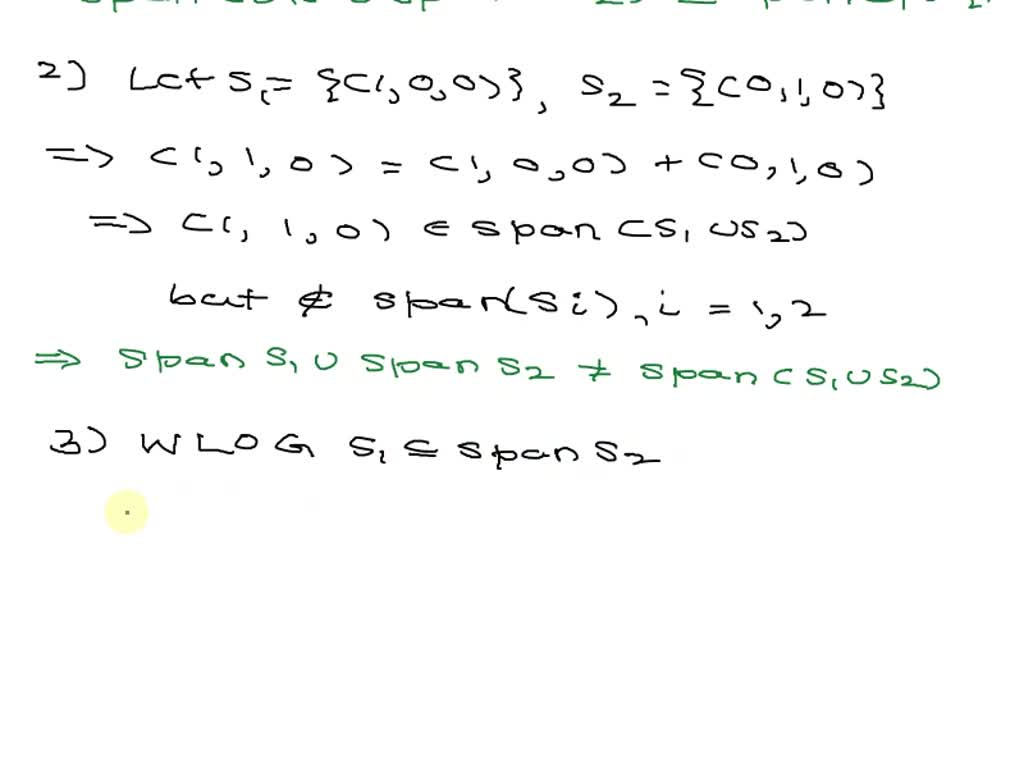 2) Let S₁ = {(1, 0, 0)}, S₂ = {(0, 1, 0)}
=> (1, 1, 0) = (1, 0, 0) + (0, 1, 0)
=> (1, 1, 0) ∈ span (S₁ ∪ S₂)
but ∉ span(Si), i = 1, 2
=> span S₁ ∪ span S₂ ≠ span (S₁ ∪ S₂)
3) WLOG S₁ ⊆ span S₂